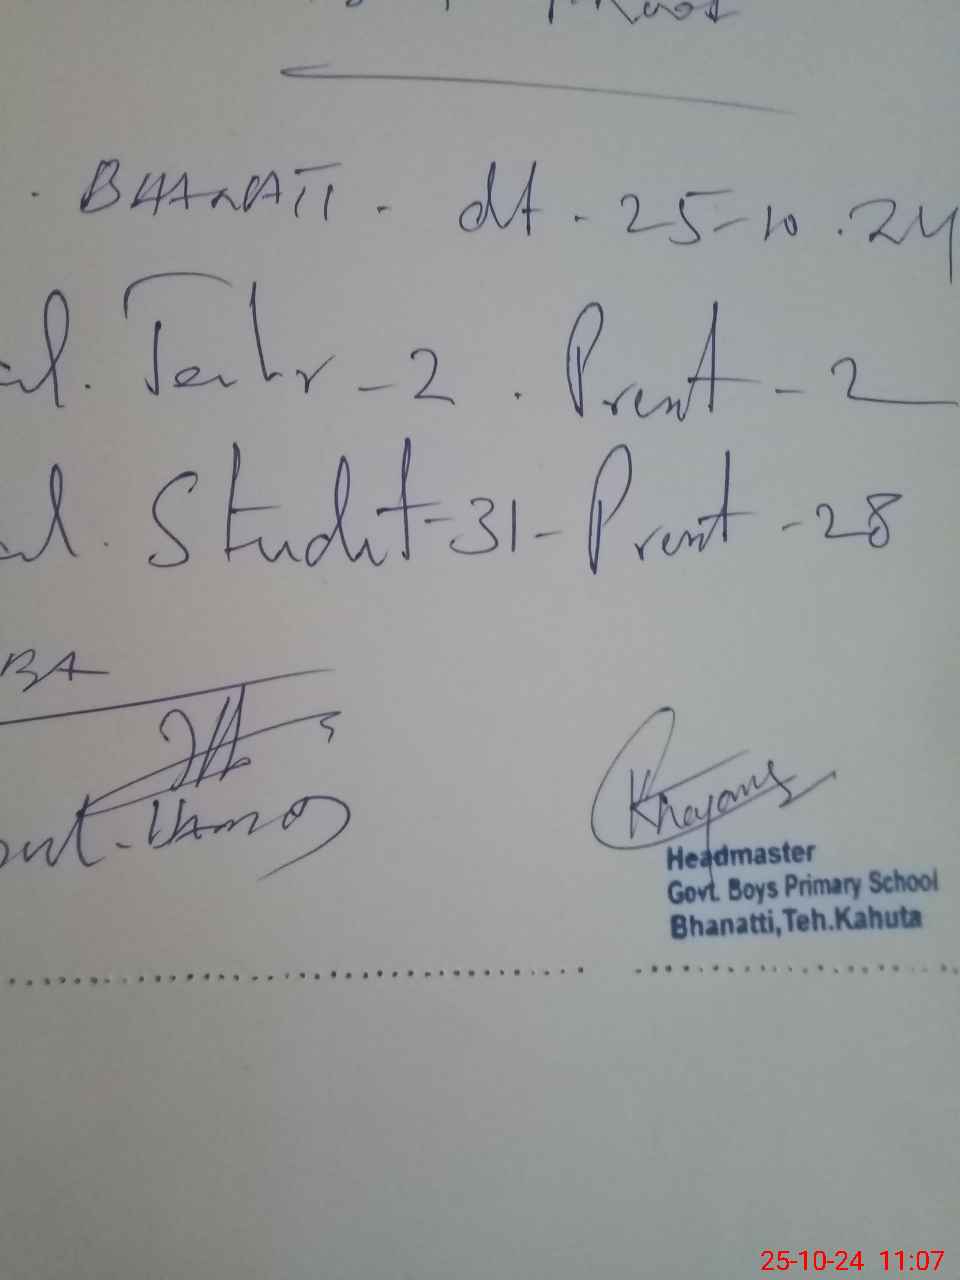 BHANATI. dt. 25-10.24
Teacher -2. Present -2
Student -31- Present -28
BA
Headmaster
Govt. Boys Primary School
Bhanatti,Teh.Kahuta
25-10-24 11:07